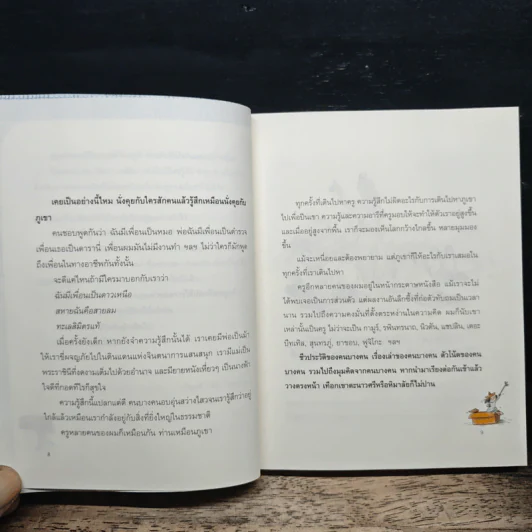 เคยเป็นอย่างนี้ไหม นั่งคุยกับใครสักคนแล้วรู้สึกเหมือนนั่งคุยกับ
ภูเขา
คนชอบพูดกันว่า ฉันมีเพื่อนเป็นหมอ พ่อฉันมีเพื่อนเป็นตำรวจ
เพื่อนเธอเป็นดารานี่ เพื่อนผมมันไม่มีงานทำ ฯลฯ ไม่ว่าใครก็มักพูด
ถึงเพื่อนในทางอาชีพกันทั้งนั้น
จะดีแค่ไหนถ้ามีใครมาบอกกับเราว่า
ฉันมีเพื่อนเป็นดาวเหนือ
สหายฉันคือสายลม
ทะเลสิมิตรแท้
เมื่อครั้งยังเด็ก หากยังจำความรู้สึกนั้นได้ เราเคยมีพ่อเป็นม้า
ให้เราขี่ผจญภัยไปในดินแดนแห่งจินตนาการแสนสนุก เรามีแม่เป็น
พระราชินีที่งดงามเต็มไปด้วยอำนาจ และมียายหนังเหี่ยวๆ เป็นนางฟ้า
ใจดีที่กอดทีไรก็สุขใจ
ความรู้สึกนี้แปลกแต่ดี คนบางคนอบอุ่นสว่างไสวจนเรารู้สึกว่าอยู่
ใกล้แล้วเหมือนเรากำลังอยู่กับสิ่งที่ยิ่งใหญ่ในธรรมชาติ
ครูหลายคนของผมก็เหมือนกัน ท่านเหมือนภูเขา
8
ทุกครั้งที่เดินไปหาครู ความรู้สึกไม่ผิดอะไรกับการเดินไปหาภูเขา
ไปเพื่อปีนเขา ความรู้และความอารีที่ครูมอบให้จะทำให้ตัวเราอยู่สูงขึ้น
และเมื่ออยู่สูงจากพื้น เราก็จะมองเห็นโลกกว้างไกลขึ้น หลายมุมมอง
ขึ้น
แม้จะเหนื่อยและต้องพยายาม แต่ภูเขาก็ให้อะไรกับเราเสมอใน
ทุกครั้งที่เราเดินไปหา
ครูอีกหลายคนของผมอยู่ในหน้ากระดาษหนังสือ แม้เราจะไม่
ได้พบเจอเป็นการส่วนตัว แต่ผลงานอันลึกซึ้งที่ท่อตัวทับถมเป็นเวลา
นาน รวมไปถึงความคงมั่นที่ตั้งตระหง่านในความคิด ผมก็นับเขา
เหล่านั้นเป็นครู ไม่ว่าจะเป็น กามูส์, รพินทรนาถ, นิวตัน, แชปลิน, เดอะ
บีทเทิล, สุนทรภู่, ชาบอบ, ฟูจิโกะ ฯลฯ
ชีวประวัติของคนบางคน เรื่องเล่าของคนบางคน ตัวโน้ตของคน
บางคน รวมไปถึงมุมคิดจากคนบางคน หากนำมาเรียงต่อกันเข้าแล้ว
วางตรงหน้า เทือกเขาตะนาวศรีหรือหิมาลัยก็ไม่ปาน
9